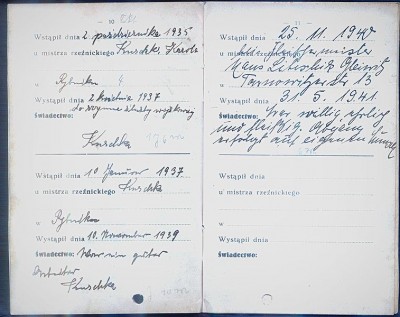 — 10 —
Wstąpił dnia 2 października 1935
u mistrza rzeźnickiego Kuschka Karola
w Rybniku
Wystąpił dnia 2 kwietnia 1937
Świadectwo: do
Kuschka
Wstąpił dnia 10 Januar 1937
u mistrza rzeźnickiego Kuschka
w Rybniku
Wystąpił dnia 10. November 1939
Świadectwo: War ein guter
Arbeiter
Kuschka
— 11 —
Wstąpił dnia 25. 11. 1940
u mistrza rzeźnickiego bei Fleischermeister
Hans Gleiwitz
w Tarnowitzerstr 13
Wystąpił dnia 31. 5. 1941.
Świadectwo: War willig ehrlich
und fleißig. Abgang
erfolgt auf eigenen Wunsch
Wstąpił dnia
u mistrza rzeźnickiego
w
Wystąpił dnia
Świadectwo: